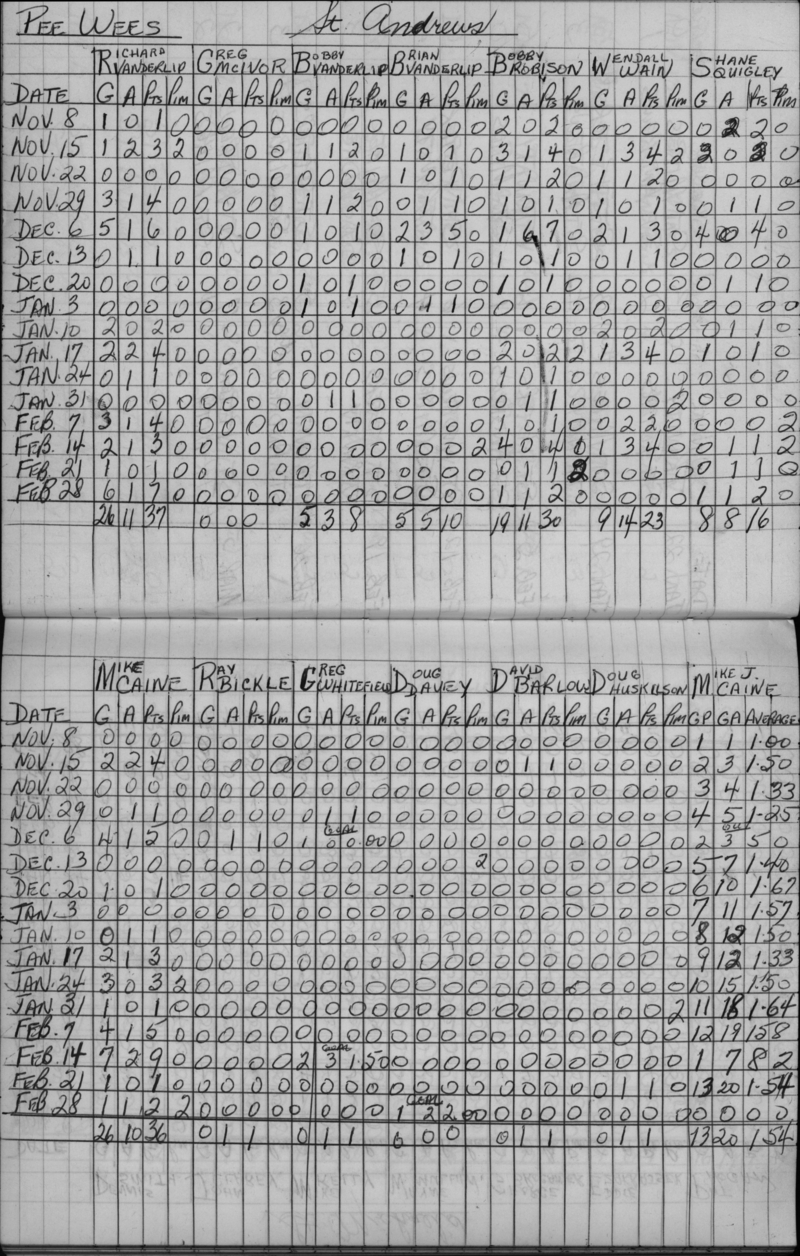 PEE WEES St. Andrews
RICHARD VANDERLIP GREG MCIVOR BOBBY VANDERLIP BRIAN VANDERLIP BOBBY ROBISON WENDALL WAIN SHANE QUIGLEY
DATE G A Pts Pim G A Pts Pim G A Pts Pim G A Pts Pim G A Pts Pim G A Pts Pim G A Pts Pim
NOV. 8 1 0 1 0 0 0 0 0 0 0 0 0 0 0 0 0 2 0 2 0 0 0 0 0 0 2 2 0
NOV. 15 1 2 3 2 0 0 0 0 1 1 2 0 1 0 1 0 3 1 4 0 1 3 4 2 2 0 2 0
NOV. 22 0 0 0 0 0 0 0 0 0 0 0 0 1 0 1 0 1 1 2 0 1 1 2 0 0 0 0 0
NOV. 29 3 1 4 0 0 0 0 0 1 1 2 0 0 1 1 0 1 0 1 0 1 0 1 0 0 1 1 0
DEC. 6 5 1 6 0 0 0 0 0 1 0 1 0 2 3 5 0 1 6 7 0 2 1 3 0 4 0 4 0
DEC. 13 0 1 1 0 0 0 0 0 0 0 0 0 1 0 1 0 1 0 1 0 0 1 1 0 0 0 0 0
DEC. 20 0 0 0 0 0 0 0 0 1 0 1 0 0 0 0 0 1 0 1 0 0 0 0 0 0 1 1 0
JAN. 3 0 0 0 0 0 0 0 0 1 0 1 0 0 1 1 0 0 0 0 0 0 0 0 0 0 0 0 0
JAN. 10 2 0 2 0 0 0 0 0 0 0 0 0 0 0 0 0 0 0 0 0 2 0 2 0 0 1 1 0
JAN. 17 2 2 4 0 0 0 0 0 0 0 0 0 0 0 0 0 2 0 2 2 1 3 4 0 1 0 1 0
JAN. 24 0 1 1 0 0 0 0 0 0 0 0 0 0 0 0 0 1 0 1 0 0 0 0 0 0 0 0 0
JAN. 31 0 0 0 0 0 0 0 0 0 1 1 0 0 0 0 0 0 1 1 0 0 0 0 2 0 0 0 0
FEB. 7 3 1 4 0 0 0 0 0 0 0 0 0 0 0 0 0 1 0 1 0 0 2 2 0 0 0 0 2
FEB. 14 2 1 3 0 0 0 0 0 0 0 0 0 0 0 0 2 4 0 4 0 1 3 4 0 0 1 1 2
FEB. 21 1 0 1 0 0 0 0 0 0 0 0 0 0 0 0 0 0 1 1 2 0 0 0 0 0 1 1 0
FEB 28 6 1 7 0 0 0 0 0 0 0 0 0 0 0 0 0 1 1 2 0 0 0 0 0 1 1 2 0
26 11 37 0 0 0 5 3 8 5 5 10 19 11 30 9 14 23 8 8 16
MIKE CAINE RAY BICKLE GREG WHITEFIELD DOUG DAVEY DAVID BARLOW DOUG HUSKILSON MIKE J. CAINE
DATE G A Pts Pim G A Pts Pim G A Pts Pim G A Pts Pim G A Pts Pim G A Pts Pim GP GA AVERAGE
NOV. 8 0 0 0 0 0 0 0 0 0 0 0 0 0 0 0 0 0 0 0 0 0 0 0 0 1 1 1.00
NOV. 15 2 2 4 0 0 0 0 0 0 0 0 0 0 0 0 0 0 1 1 0 0 0 0 0 2 3 1.50
NOV. 22 0 0 0 0 0 0 0 0 0 0 0 0 0 0 0 0 0 0 0 0 0 0 0 0 3 4 1.33
NOV. 29 0 1 1 0 0 0 0 0 0 1 1 0 0 0 0 0 0 0 0 0 0 0 0 0 4 5 1.25
DEC. 6 4 1 5 0 0 1 1 0 1 GOAL 0 0.00 0 0 0 0 0 0 0 0 0 0 0 0 2 OUT 3 5 0
DEC. 13 0 0 0 0 0 0 0 0 0 0 0 0 0 0 0 2 0 0 0 0 0 0 0 0 5 7 1.40
DEC. 20 1 0 1 0 0 0 0 0 0 0 0 0 0 0 0 0 0 0 0 0 0 0 0 0 6 10 1.67
JAN. 3 0 0 0 0 0 0 0 0 0 0 0 0 0 0 0 0 0 0 0 0 0 0 0 0 7 11 1.57
JAN. 10 0 1 1 0 0 0 0 0 0 0 0 0 0 0 0 0 0 0 0 0 0 0 0 0 8 12 1.50
JAN. 17 2 1 3 0 0 0 0 0 0 0 0 0 0 0 0 0 0 0 0 0 0 0 0 0 9 12 1.33
JAN. 24 3 0 3 2 0 0 0 0 0 0 0 0 0 0 0 0 0 0 0 0 0 0 0 0 10 15 1.50
JAN 31 1 0 1 0 0 0 0 0 0 0 0 0 0 0 0 0 0 0 0 0 0 0 0 2 11 18 1.64
FEB. 7 4 1 5 0 0 0 0 0 0 0 0 0 0 0 0 0 0 0 0 0 0 0 0 0 12 19 1.58
FEB. 14 7 2 9 0 0 0 0 0 2 GOAL 3 1.50 0 0 0 0 0 0 0 0 0 0 0 0 1 7 8 2
FEB. 21 1 0 1 0 0 0 0 0 0 0 0 0 0 0 0 0 0 0 0 0 0 1 1 0 13 20 1.54
FEB 28 1 1 2 2 0 0 0 0 0 0 0 0 1 GOAL 2 2.00 0 0 0 0 0 0 0 0 0 0 0 0
26 10 36 0 1 1 0 1 1 0 0 0 0 1 1 0 1 1 13 20 1.54